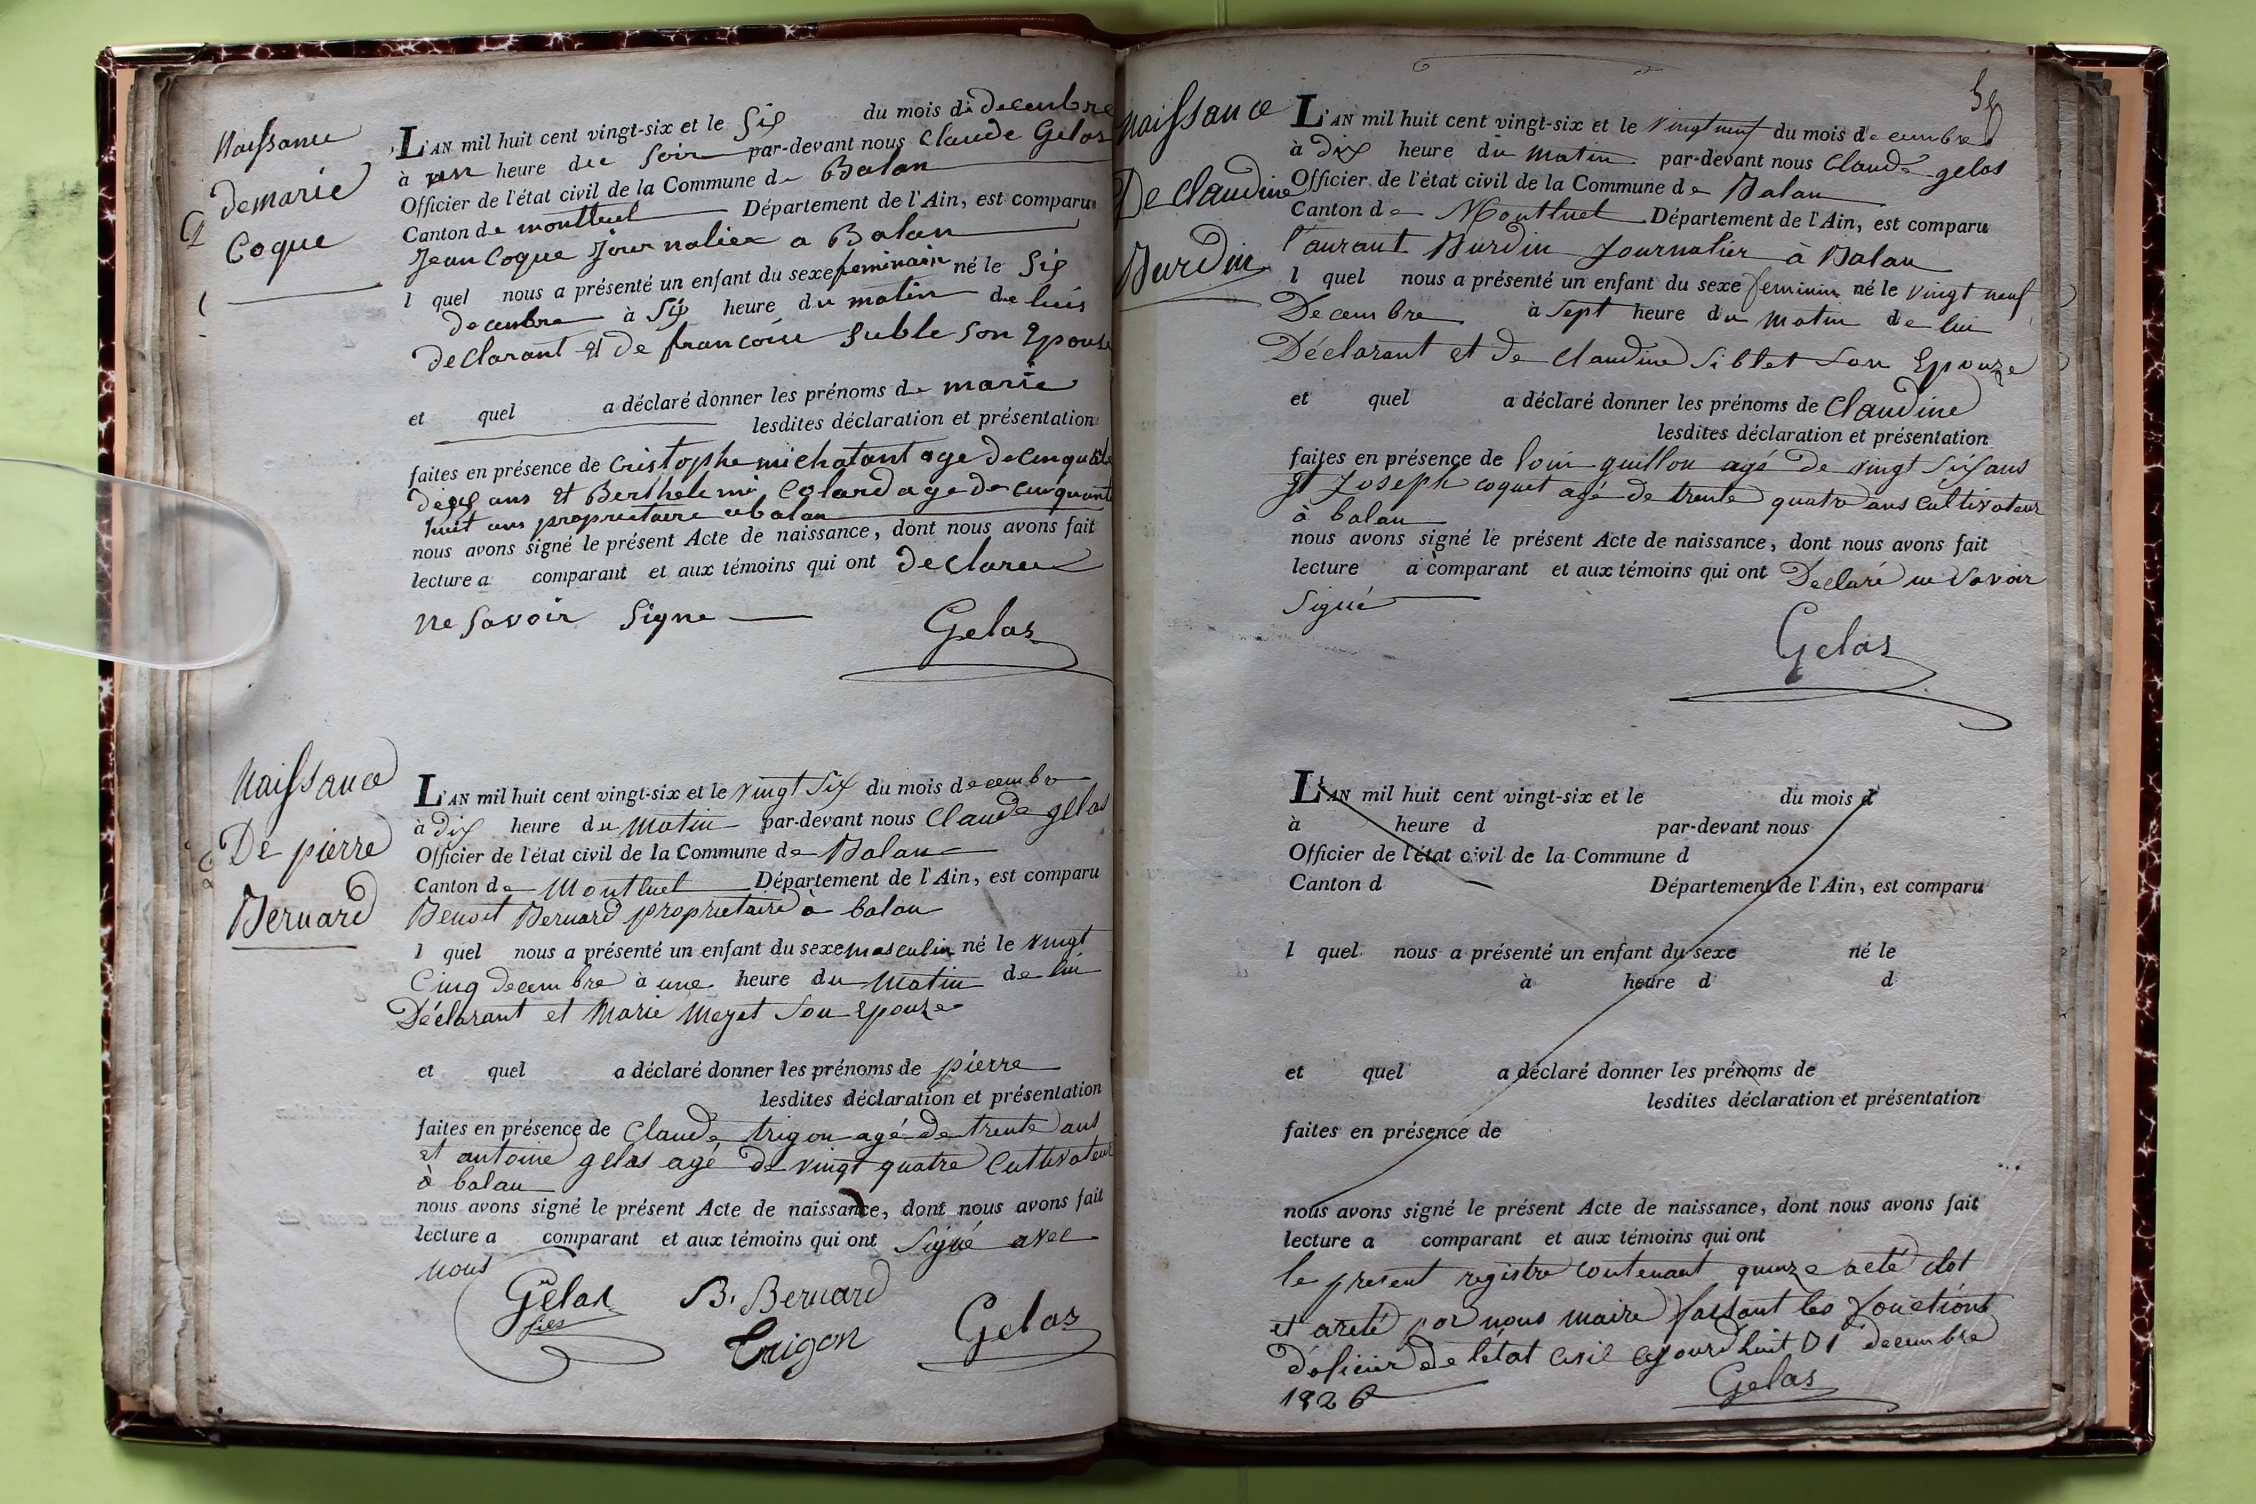 Naissance
de marie
Coque
L'AN mil huit cent vingt-six et le six du mois di decembre
à un heure du soir par-devant nous Claude Gelas
Officier de l'état civil de la Commune de Balan
Canton de montluel Département de l'Ain, est comparu
Jean Coque Journalier a Balan
l quel nous a présenté un enfant du sexe feminain né le six
decembre à six heure du matin de luis
declarant et de francoise suble son Epouse
et quel a déclaré donner les prénoms de marie
lesdites déclaration et présentation
faites en présence de Cristophe michatant age de cinquante
ans et Berthelemi Colard age de cinquante
huit ans proprietaire a balan
nous avons signé le présent Acte de naissance, dont nous avons fait
lecture a comparant et aux témoins qui ont declare
ne savoir signe
Gelas
Naissance
De pierre
Bernard
L'AN mil huit cent vingt-six et le vingt six du mois decembre
à dix heure du matin par-devant nous Claude gelas
Officier de l'état civil de la Commune de Balan
Canton de Montluel Département de l'Ain, est comparu
Benoit Bernard proprietaire à balan
l quel nous a présenté un enfant du sexe masculin né le vingt
Cinq decembre à une heure du matin de lui
Déclarant et Marie Meyet son Epouze
et quel a déclaré donner les prénoms de pierre
lesdites déclaration et présentation
faites en présence de Claude trigon agé de trente ans
et antoine gelas agé de vingt quatre Cultivateur
à balan
nous avons signé le présent Acte de naissance, dont nous avons fait
lecture a comparant et aux témoins qui ont Signé avec
nous
Gelas B. Bernard
fils Trigon Gelas
Naissance
De Claudine
Burdin
L'AN mil huit cent vingt-six et le vingt neuf du mois decembre
à dix heure du matin par-devant nous Claude gelas
Officier de l'état civil de la Commune de Balan
Canton de Montluel Département de l'Ain, est comparu
l'aurant Burdin Journalier à Balan
l quel nous a présenté un enfant du sexe feminin né le vingt neuf
Decembre à sept heure du matin de lui
Déclarant et de Claudine Siblet son Epouze
et quel a déclaré donner les prénoms de Claudine
lesdites déclaration et présentation
faites en présence de loui guillon agé de vingt six ans
et Joseph coquet agé de trente quatre ans Cultivateur
à balan
nous avons signé le présent Acte de naissance, dont nous avons fait
lecture a comparant et aux témoins qui ont Déclaré ne savoir
Signé
Gelas
L'AN mil huit cent vingt-six et le du mois d
à heure d par-devant nous
Officier de l'état civil de la Commune d
Canton d Département de l'Ain, est comparu
l quel nous a présenté un enfant du sexe né le
à heure d d
et quel a déclaré donner les prénoms de
lesdites déclaration et présentation
faites en présence de
nous avons signé le présent Acte de naissance, dont nous avons fait
lecture a comparant et aux témoins qui ont
le present registre contenant quinze acté clot
et areté par nous maire faisant les fonctions
d'oficier de l'état civil cejourd'huit 31 decembre
1826
Gelas